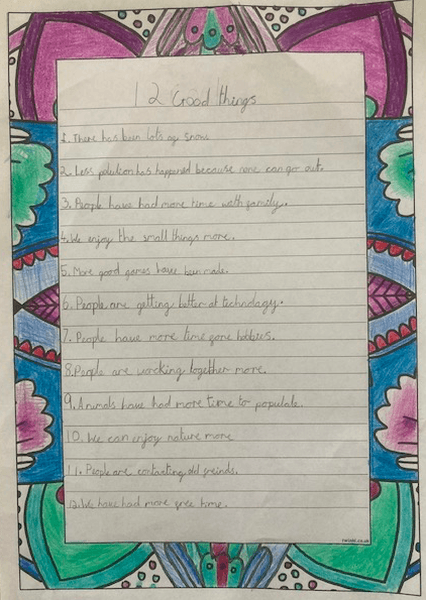 12 Good things
1. There has been lots og snow
2. Less polution has happened because none can go out.
3. People have had more time with family.
4. We enjoy the small things more.
5. More good games have been made.
6. People are getting better at technology.
7. People have more time gore hobbies.
8. People are worcking together more.
9. Animals have had more time to populate.
10. We can enjoy nature more
11. People are contacting old greinds.
12. We have had more gree time.
twinkl.co.uk